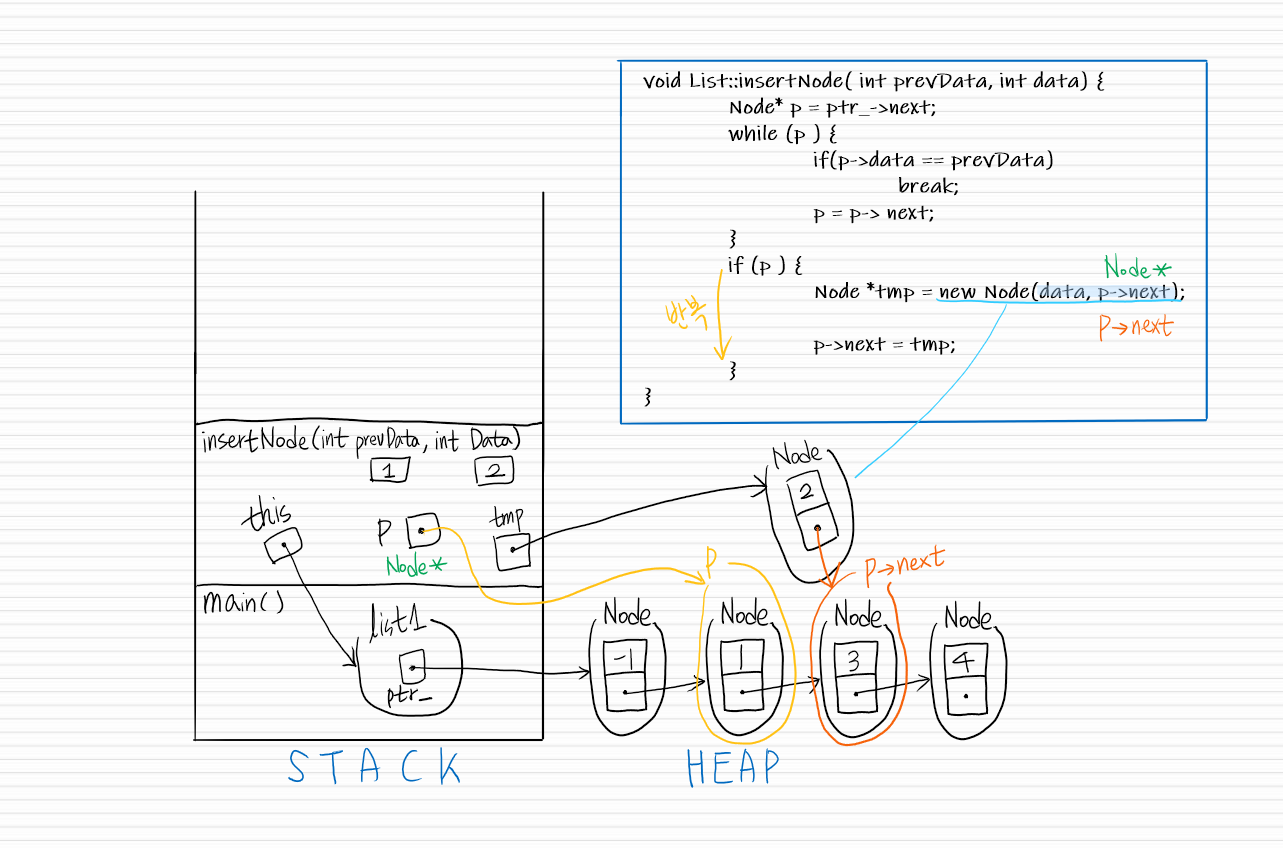 void List::insertNode( int prevData, int data) {
Node* p = ptr_->next;
while (p ) {
if(p->data == prevData)
break;
p = p-> next;
}
if (p ) {
Node*
Node *tmp = new Node(data, p->next);
반복
P→next
p->next = tmp;
}
}
insertNode(int prevData, int Data)
1 2
this
P
tmp
Node*
Node
2
main()
list1
ptr_
P
P→next
Node Node Node Node
-1 1 3 4
STACK
HEAP